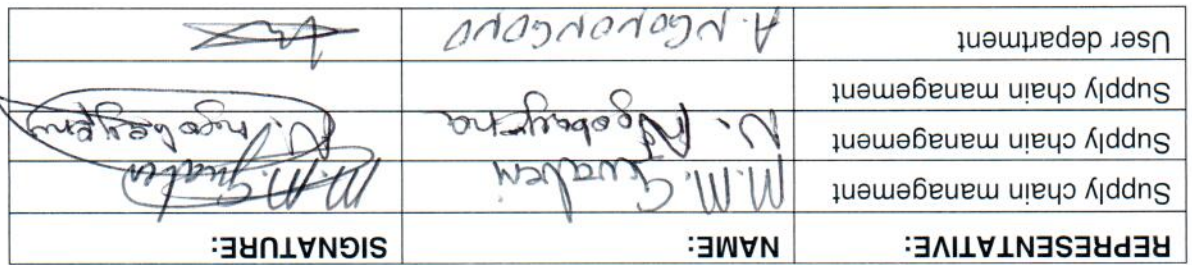 REPRESENTATIVE: NAME: SIGNATURE:
Supply chain management M.M. Gwabeni M.M. Gwabeni
Supply chain management N. Ngobayena
Supply chain management
User department A. NGONONGONO